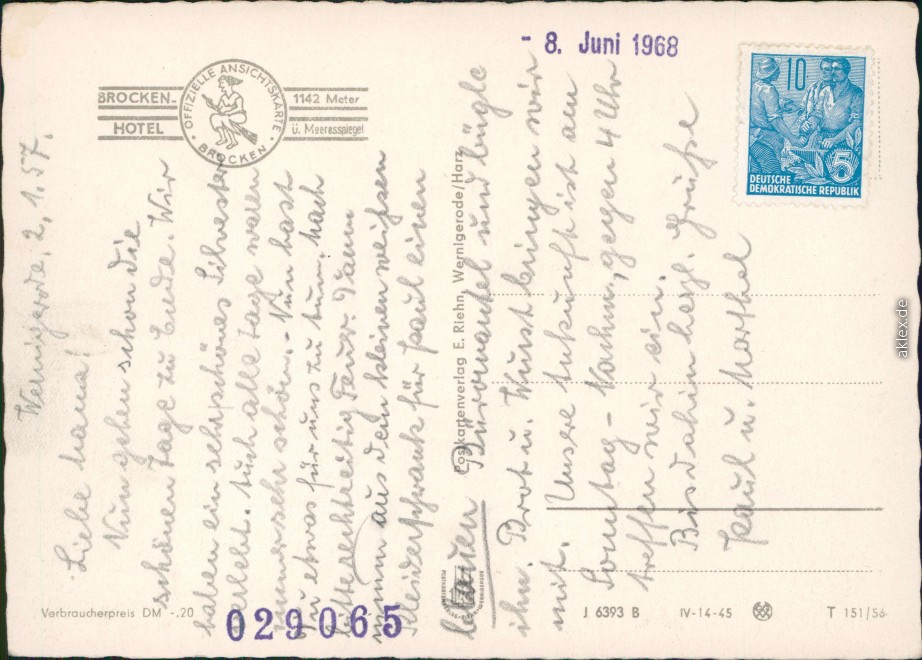 - 8. Juni 1968
BROCKEN-
HOTEL
OFFIZIELLE ANSICHTSKARTE
· BROCKEN ·
1142 Meter
ü. Meeresspiegel
10
5
DEUTSCHE
DEMOKRATISCHE REPUBLIK
Wernigerode, 2. 1. 57.
Liebe Mama!
Nun gehen schon die
schönen Tage zu Ende. Wir
haben ein sehr schönes Silvester
verlebt. Auch alle Tage waren
immer sehr schön. - Nun hast
Du etwas für uns zu tun. Mach
bitte rechtzeitig Feuer. Dann
nimm aus dem kleinen weißen
Kleiderschrank für Paul einen
blauen Büromantel und bügle
ihn. Brot u. Wurst bringen wir
mit. Unsere Ankunft ist am
Sonntag - Nachm. gegen 4 Uhr
treffen wir ein.
Bis dahin herzl. Grüße
Paul u. Marthel
Postkartenverlag E. Riehn, Wernigerode/Harz
Verbraucherpreis DM -.20
029065
J 6393 B
IV-14-45
T 151/56
aklex.de